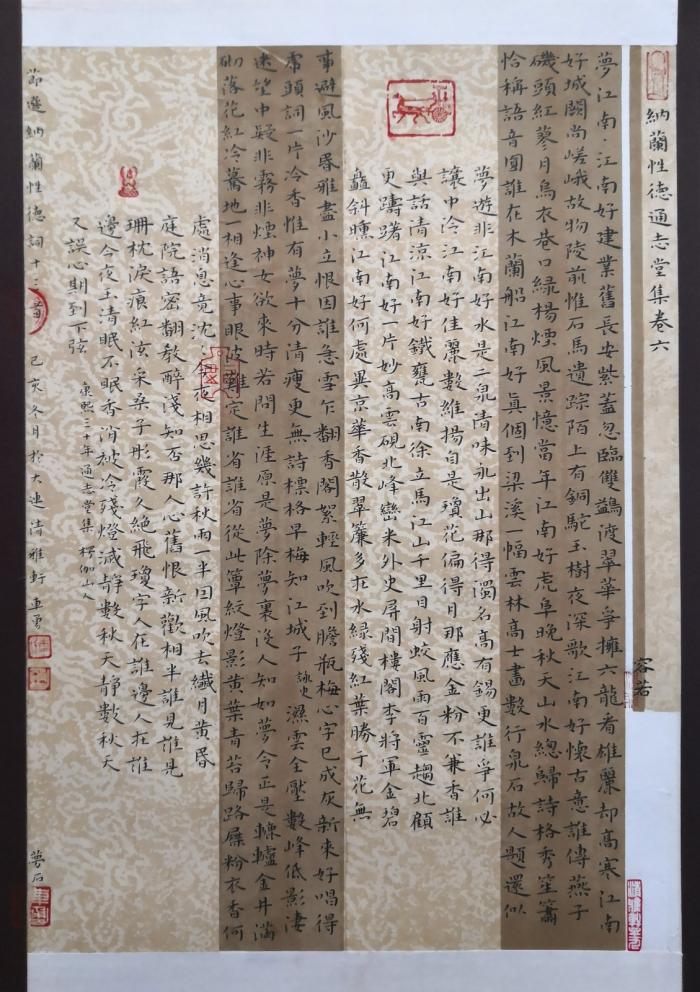 納蘭性德通志堂集卷六
容若
夢江南·江南好建業舊長安紫蓋忽臨雙鷁渡翠華爭擁六龍看雄麗却高寒江南
好城闕尚嵯峨故物陵前惟石馬遺踪陌上有銅駝玉樹夜深歌江南好懷古意誰傳燕子
磯頭紅蓼月烏衣巷口綠楊煙風景憶當年江南好虎阜晚秋天山水總歸詩格秀笙簫
恰稱語音圓誰在木蘭船江南好真個到梁溪一幅雲林高士畫數行泉石故人題還似
夢遊非江南好水是二泉清味永出山那得濁名高有錫更誰爭何必
讓中泠江南好佳麗數維揚自是瓊花偏得月那應金粉不兼香誰
與話清涼江南好鐵甕古南徐立馬江山千里目射蛟風雨百靈趨北顧
更躊躇江南好一片妙高雲硯北峰巒米外史屏間樓閣李將軍金碧
矗斜曛江南好何處異京華香散翠簾多在水綠殘紅葉勝于花無
事避風沙昏鴉盡小立恨因誰急雪乍翻香閣絮輕風吹到膽瓶梅心字已成灰新來好唱得
虎頭詞一片冷香惟有夢十分清瘦更無詩標格早梅知江城子詠史濕雲全壓數峰低影淒
迷望中疑非霧非煙神女欲來時若問生涯原是夢除夢裏沒人知如夢令正是轆轤金井滿
砌落花紅冷驀地一相逢心事眼波難定誰省誰省從此簟紋燈影黃葉青苔歸路屧粉衣香何
處消息竟沈沈今夜相思幾許秋雨一半因風吹去纖月黃昏
庭院語密翻教醉淺知否那人心舊恨新歡相半誰見誰見
珊枕淚痕紅泫采桑子彤霞久絕飛瓊字人在誰邊人在誰
邊今夜玉清眠不眠香消被冷殘燈滅静數秋天静數秋天
又誤心期到下弦
康熙三十年通志堂集 楞伽山人
節選納蘭性德詞十二首 己亥冬月於大連清雅軒 車勇
夢石